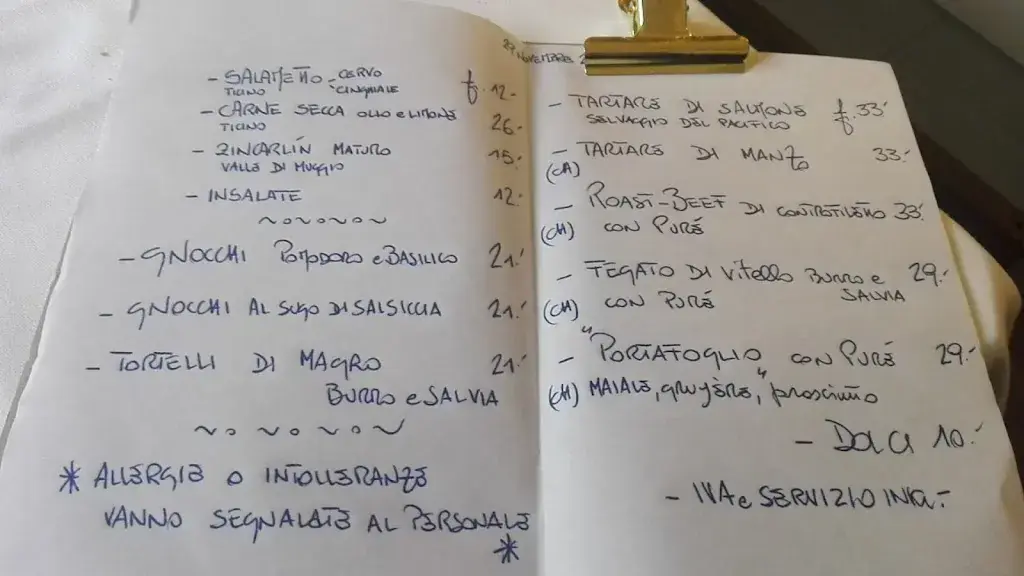 - SALAMETTO - CERVO f. 12.-
TICINO - CINGHIALE
- CARNE SECCA OLIO e LIMONE 26.-
TICINO
- ZINCARLIN MATURO 15.-
VALLE DI MUGGIO
- INSALATE 12.-
~o~o~o~
- GNOCCHI POMODORO e BASILICO 21.-
- GNOCCHI AL SUGO DI SALSICCIA 21.-
- TORTELLI DI MAGRO 21.-
BURRO e SALVIA
~o~o~o~
* ALLERGIE O INTOLLERANZE
VANNO SEGNALATE AL PERSONALE
*
NOVEMBRE
- TARTARE DI SALMONE f. 33.-
SELVAGGIO DEL PACIFICO
- TARTARE DI MANZO 33.-
(CH)
- ROAST-BEEF DI CONTROFILETTO 33.-
(CH) CON PURÉ
- FEGATO DI VITELLO BURRO e 29.-
SALVIA
(CH) CON PURÉ
- "PORTAFOGLIO CON PURÉ 29.-
(CH) MAIALE, gruyère, " prosciutto
- Dolci 10.-
- IVA e SERVIZIO INCL.-